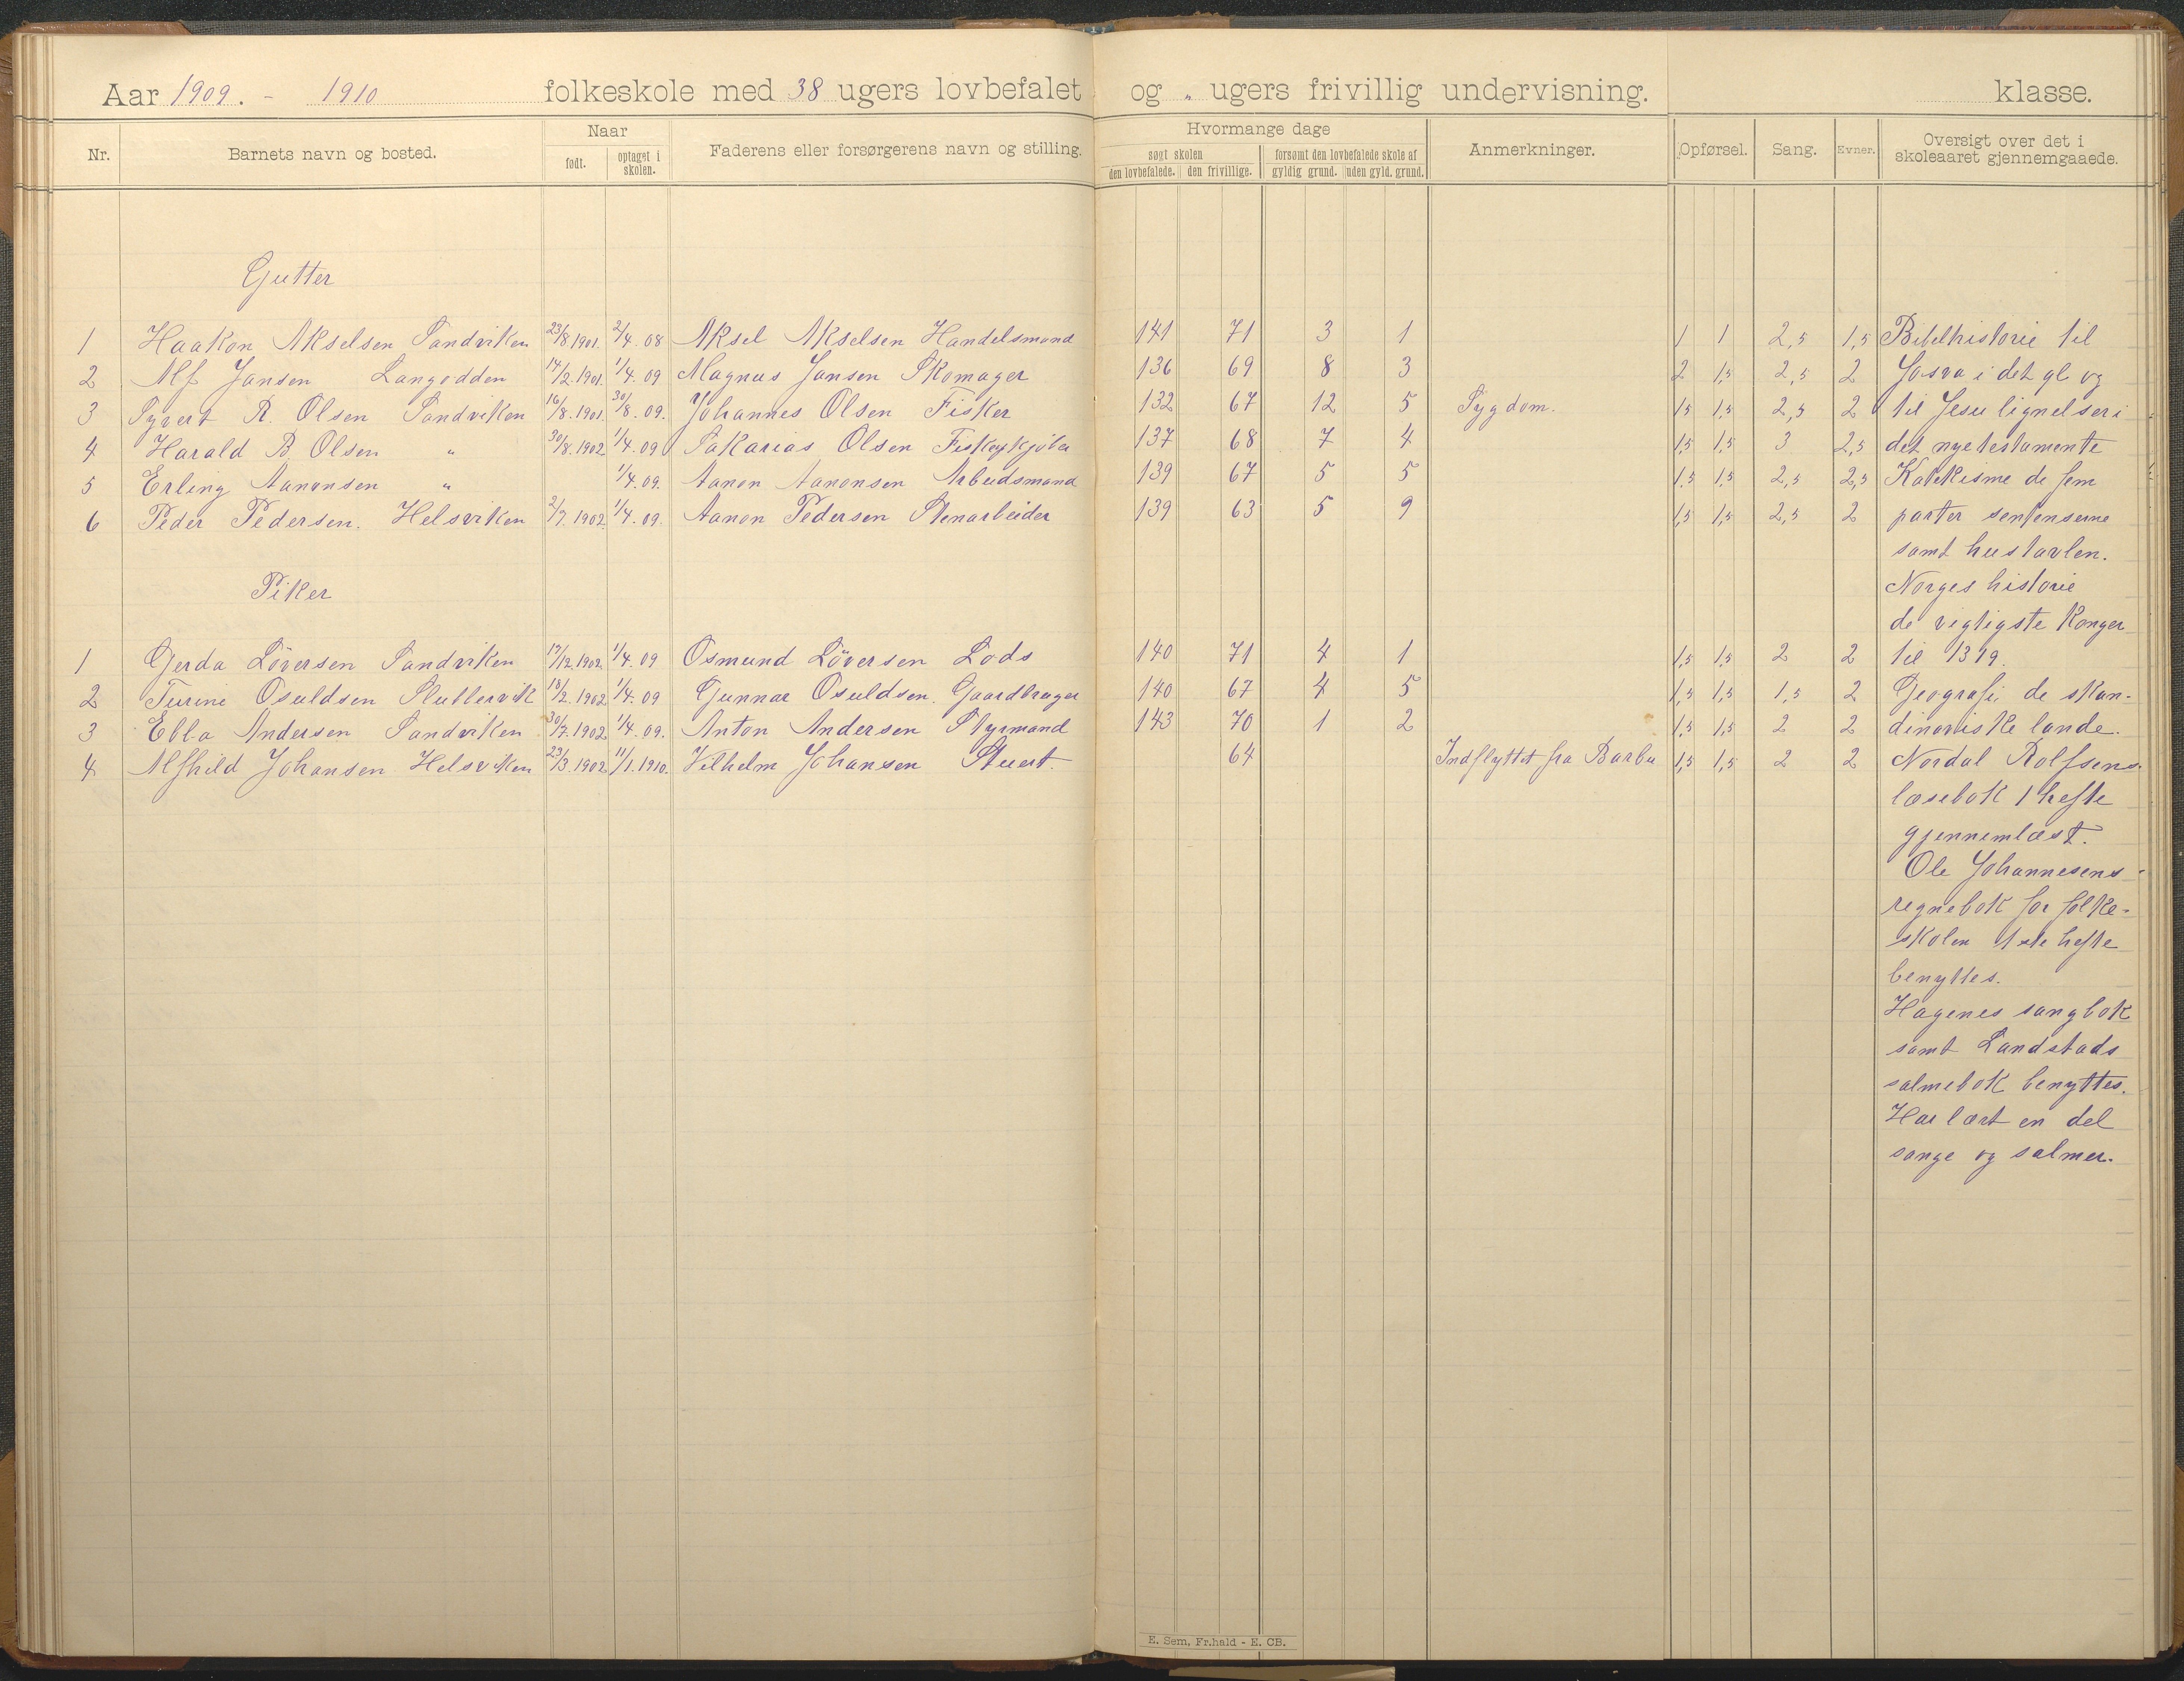 Aar 1909. - 1910 folkeskole med 38 ugers lovbefalet og " ugers frivillig undervisning. klasse.
Nr. Barnets navn og bosted. Naar født. optaget i skolen. Faderens eller forsørgerens navn og stilling. Hvormange dage søgt skolen den lovbefalede. den frivillige. forsømt den lovbefalede skole af gyldig grund. uden gyld. grund. Anmerkninger. Opførsel. Sang. Evner. Oversigt over det i skoleaaret gjennemgaaede.
Gutter
1 Haakon Akselsen Sandviken 23/8 1901. 2/4. 08 Aksel Akselsen Handelsmand 141 71 3 1 1 1 2,5 1,5 Bibelhistorie til
2 Alf Jansen Langodden 14/2. 1901. 1/4. 09 Magnus Jansen Skomager 136 69 8 3 2 1,5 2,5 2 Josva i det gl og
3 Syvert R. Olsen Sandviken 16/8. 1901. 30/8. 09. Johannes Olsen Fisker 132 67 12 5 Sygdom. 1,5 1,5 2,5 2 til Jesu lignelser i
4 Harald B. Olsen " 30/8. 1902 1/4. 09 Sakarias Olsen 137 68 7 4 1,5 1,5 3 2,5 det nye testamente
5 Erling Aanonsen " 1/4. 09. Aanon Aanonsen Arbeidsmand 139 67 5 5 1,5 1,5 2,5 2,5 Katekisme de fem
6 Peder Pedersen. Helsviken 2/7. 1902 1/4. 09. Aanon Pedersen Stenarbeider 139 63 5 9 1,5 1,5 2,5 2 parter sentenserne
samt hustavlen.
Piker
Norges historie
de vigtigste konger
1 Gerda Löversen Sandviken 17/12. 1902 1/4. 09 Osmund Löversen Lods 140 71 4 1 1,5 1,5 2 2 til 1319.
2 Turine Osuldsen 18/2. 1902 1/4. 09 Gunnar Osuldsen. Gaardbruger 140 67 4 5 1,5 1,5 1,5 2 Geografi, de skan-
3 Ebba Andersen Sandviken 30/7. 1902 1/4. 09. Anton Andersen Styrmand 143 70 1 2 1,5 1,5 2 2 dinaviske lande.
4 Alfhild Johansen Helsviken 23/3. 1902 11/1. 1910. Vilhelm Johansen Stuert. 64 Indflyttet fra Barbu 1,5 1,5 2 2 Nordal Rolfsens
læsebok 1 hefte
gjennemlæst.
Ole Johannesens
regnebok for folke-
skolen 1ste hefte
benyttes.
Hagenes sangbok
samt Landstads
salmebok benyttes.
Har lært en del
sange og salmer.
E. Sem, Fr.hald - E. CB.